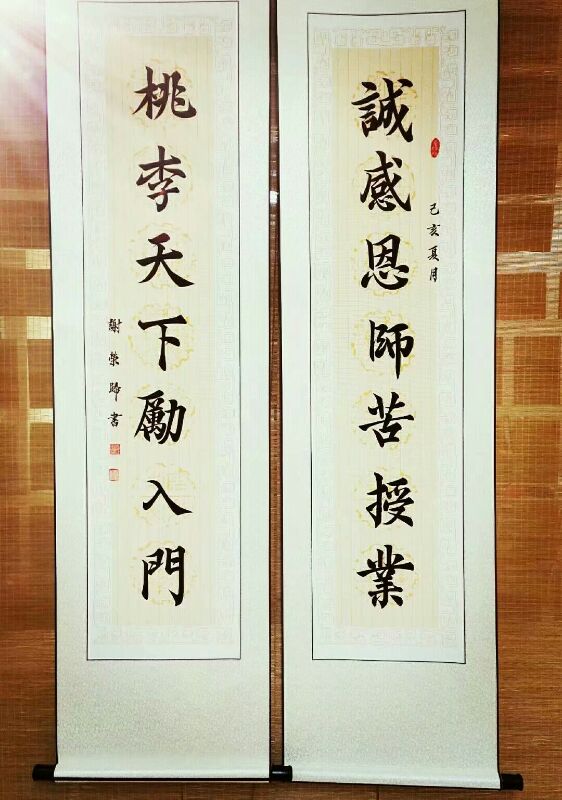 誠感恩師苦授業
己亥夏月
桃李天下勵入門
謝榮歸書